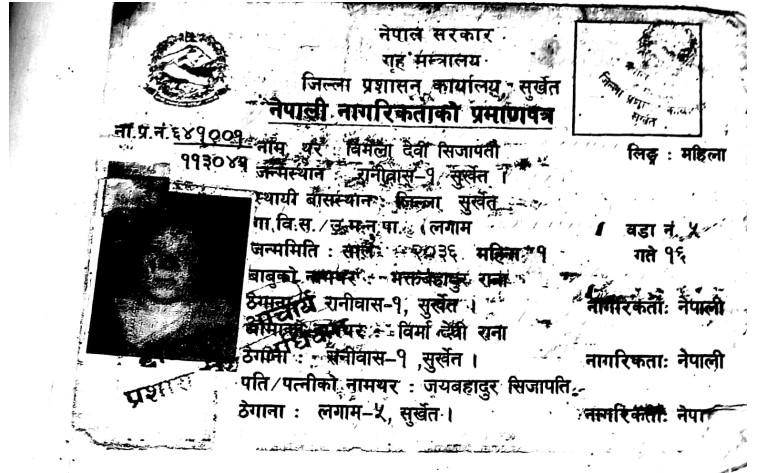 नेपाल सरकार
गृह मन्त्रालय
जिल्ला प्रशासन कार्यालय, सुर्खेत
नेपाली नागरिकताको प्रमाणपत्र
जिल्ला प्रशा कार्यालय
सुर्खेत
ना.प्र.नं. ६४१००१
११३०४५
नाम थर : विमला देवी सिजापती लिङ्ग : महिला
जन्मस्थान : रानीवास-१, सुर्खेत ।
स्थायी बासस्थान : जिल्ला सुर्खेत
गा.वि.स./उ.म.न.पा. : लगाम वडा नं. ५
जन्ममिति : साल :- २०३६ महिना १ गते १६
बाबुको नामथर :- भक्तबहादुर राना
ठेगाना : रानीवास-१, सुर्खेत । नागरिकता: नेपाली
आमाको नामथर :- विर्मा देवी राना
ठेगाना : रानीवास-१ ,सुर्खेत । नागरिकता: नेपाली
पति/पत्नीको नामथर : जयबहादुर सिजापति
ठेगाना : लगाम-५, सुर्खेत । नागरिकता: नेपा